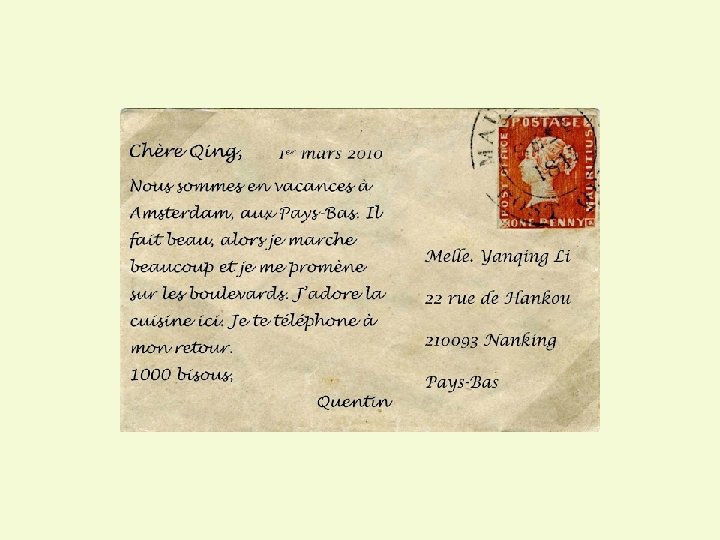 Chère Qing,
1er mars 2010
Nous sommes en vacances à
Amsterdam, aux Pays-Bas. Il
fait beau, alors je marche
beaucoup et je me promène
sur les boulevards. J'adore la
cuisine ici. Je te téléphone à
mon retour.
1000 bisous,
Quentin
POSTAGE
POST OFFICE
MAURITIUS
ONE PENNY
Melle. Yanqing Li
22 rue de Hankou
210093 Nanking
Pays-Bas